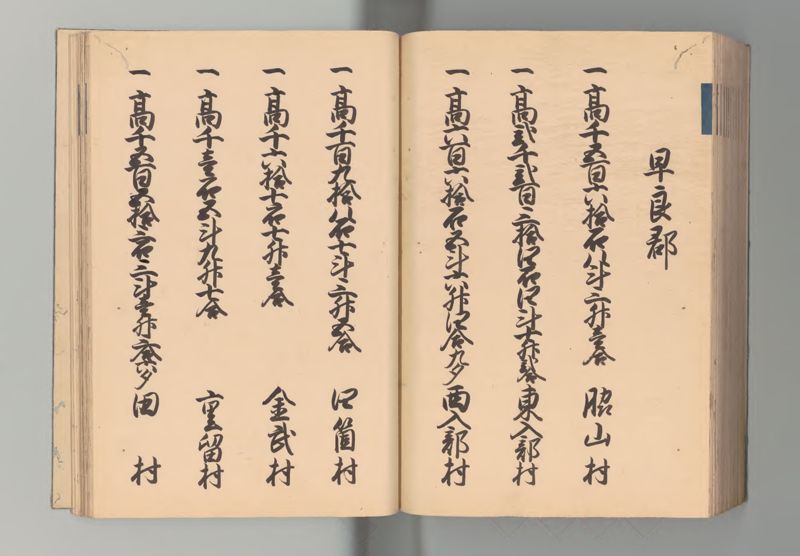 早良郡
一高千五百六拾石八斗三升壱合 脇山村
一高弐千弐百三拾四石四斗七升弐合 東入部村
一高六百六拾石五斗六升四合九夕 西入部村
一高千百九拾八石七斗三升五合 四箇村
一高千六拾七石七升壱合 金武村
一高千壱石五斗九升七合 重留村
一高千五百五拾三石三斗壱升 田村